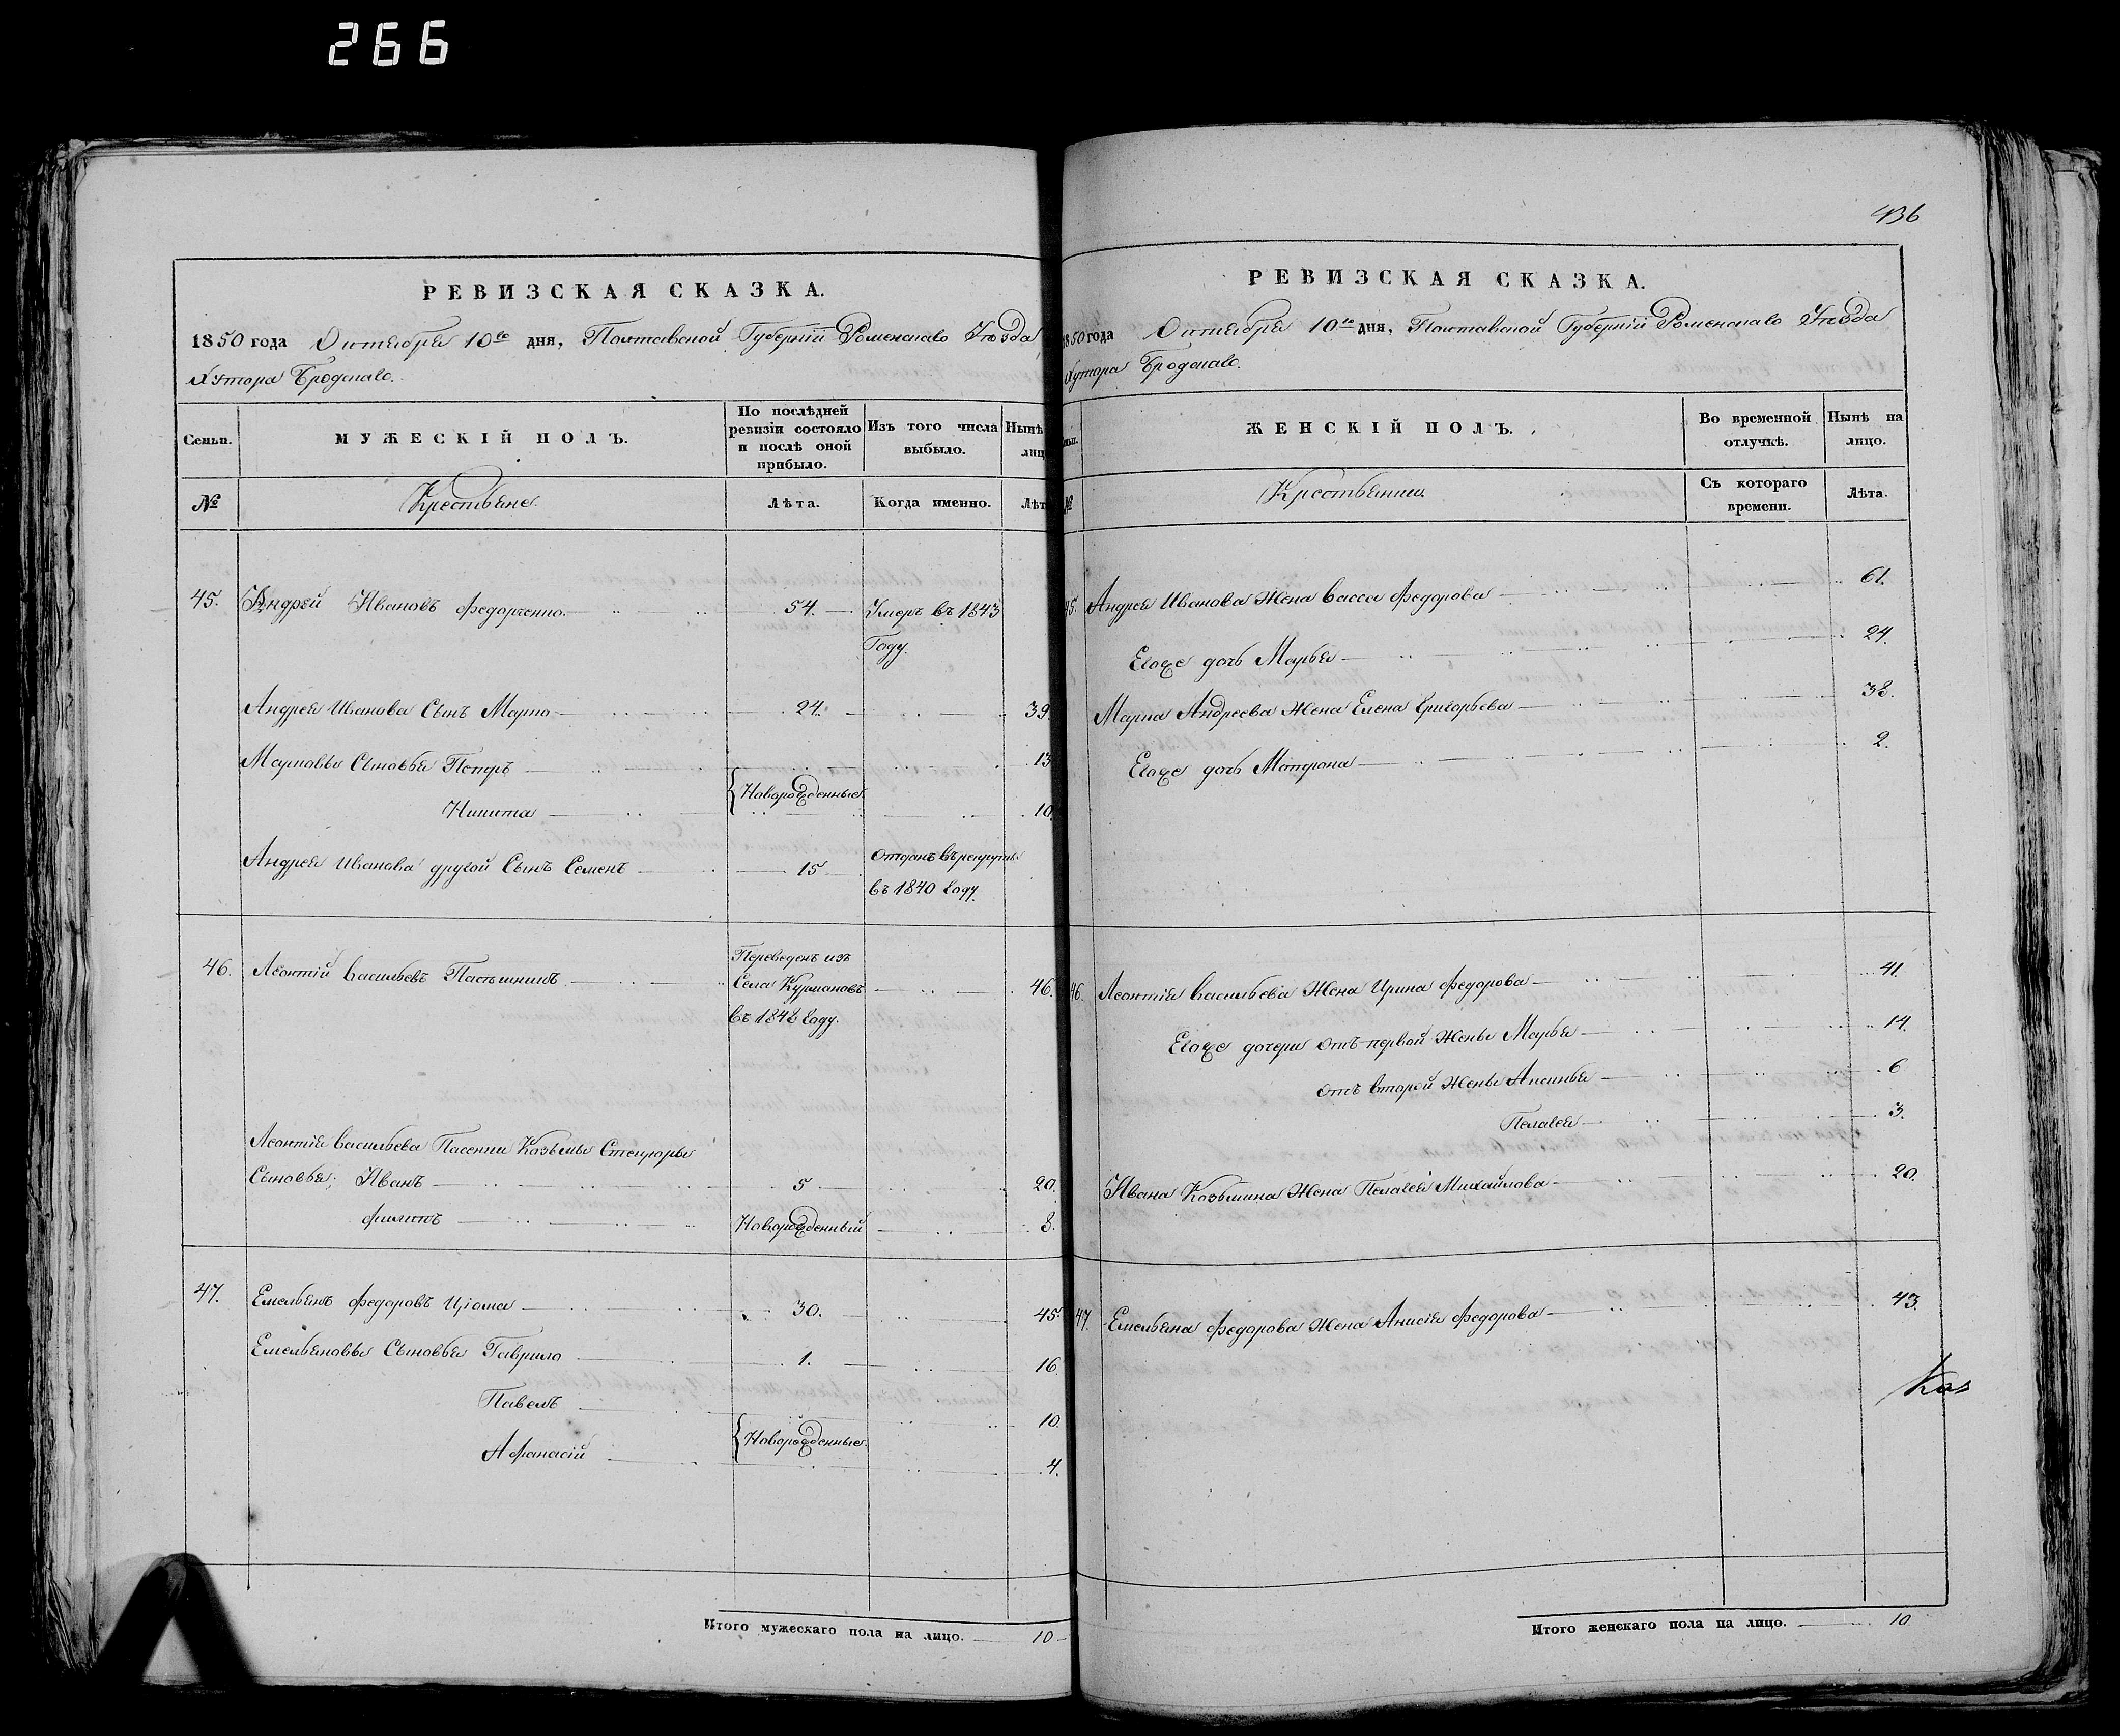 266
РЕВИЗСКАЯ СКАЗКА.
1850 года Октября 10го дня, Полтавской Губерніи Роменскаго Уѣзда
Хутора Бродскаго.
Семьи. МУЖЕСКІЙ ПОЛЪ. По послѣдней ревизіи состояло и послѣ оной прибыло. Изъ того числа выбыло. Нынѣ лиц
№ Крестьяне. Лѣта. Когда именно. Лѣт
45. Андрей Ивановъ Федорченко. 54. Умеръ въ 1843
Году.
Андрея Иванова Сынъ Марко 24. 39.
Марковы Сыновья Петръ 13
{Новорожденные.
Никита 10.
Андрея Иванова другой Сынъ Семенъ 15 Отданъ въ рекруты
въ 1840 Году.
Переведенъ изъ
46. Леонтій Васильевъ Села Курмановъ 46.
въ 1848 Году.
Леонтія Васильева Пасенки Козьмы
Сыновья; Иванъ 5 20.
Филипъ Новорожденный 8.
47. Емельянъ Федоровъ Цюма 30. 45.
Емельяновы Сыновья Гаврило 1. 16
Павелъ 10.
{Новорожденные.
Афанасій 4.
Итого мужескаго пола на лицо. 10
436
РЕВИЗСКАЯ СКАЗКА.
1850 года Октября 10го дня, Полтавской Губерніи Роменскаго Уѣзда
Хутора Бродскаго.
ЖЕНСКІЙ ПОЛЪ. Во временной отлучкѣ. Нынѣ на лицо.
№ Крестьянки. Съ котораго времени. Лѣта.
45. Андрея Иванова Жена Васса Федорова 61.
Егоже дочь Марья 24.
Марка Андреева Жена Елена Григорьева 38.
Егоже дочь Матрона 2.
46. Леонтія Васильева Жена Ирина Федорова 41.
Егоже дочери отъ первой Жены Марья 14.
отъ второй Жены Аксинья 6
Пелагея 3.
Ивана Козьмина Жена Пелагея Михайлова 20.
47. Емельяна Федорова Жена Анисія Федорова 43.
Итого женскаго пола на лицо. 10